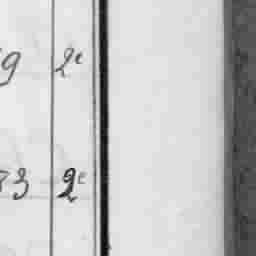 9 2e
33 2e